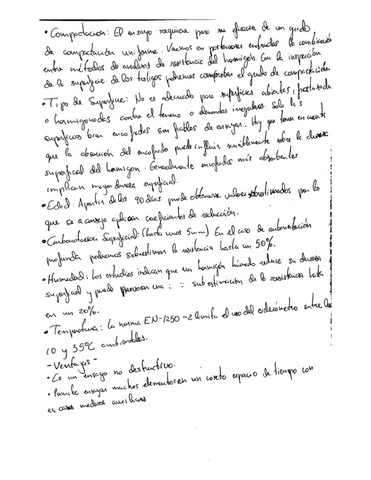 • Compactacion: El ensayo requiere para su eficacia de un grado
de compactación uniforme. Vacuos en posteriores entradas la combinación
entre métodos de analisis de resistencia del hormigón. Con la inspección
de la superficie de los testigos podremos comprobar el grado de compactación.
• Tipo de Superficie: No es adecuado para superficies abiertas,
o hormigonadas contra el terreno o demasiado irregulares. Solo las
superficies bien encofradas son fiables de ensayar. Hay que tener en cuenta
que la absorción del encofrado puede influir sensiblemente sobre la dureza
superficial del hormigon. Generalmente encofrados más absorbentes
implican mayor dureza superficial.
• Edad: Apartir de los 90 dias puede obtenerse valores por lo
que se aconseja aplicar coeficientes de reducción.
• Carbonatacion Superficial: (hasta unos 5mm) En el caso de carbonatación
profunda podremos subestimar la resistencia hasta un 50%.
• Humedad: Los estudios indican que un hormigón húmedo reduce su dureza
superficial y puede una subestimación de la resistencia hasta
en un 20%.
• Temperatura: La norma EN-1250-2 limita el uso del esclerómetro entre los
10 y 35ºC ambientales.
- Ventajas -
• Es un ensayo no destructivo.
• Permite ensayar muchos elementos en un corto espacio de tiempo con
escasos medios auxiliares